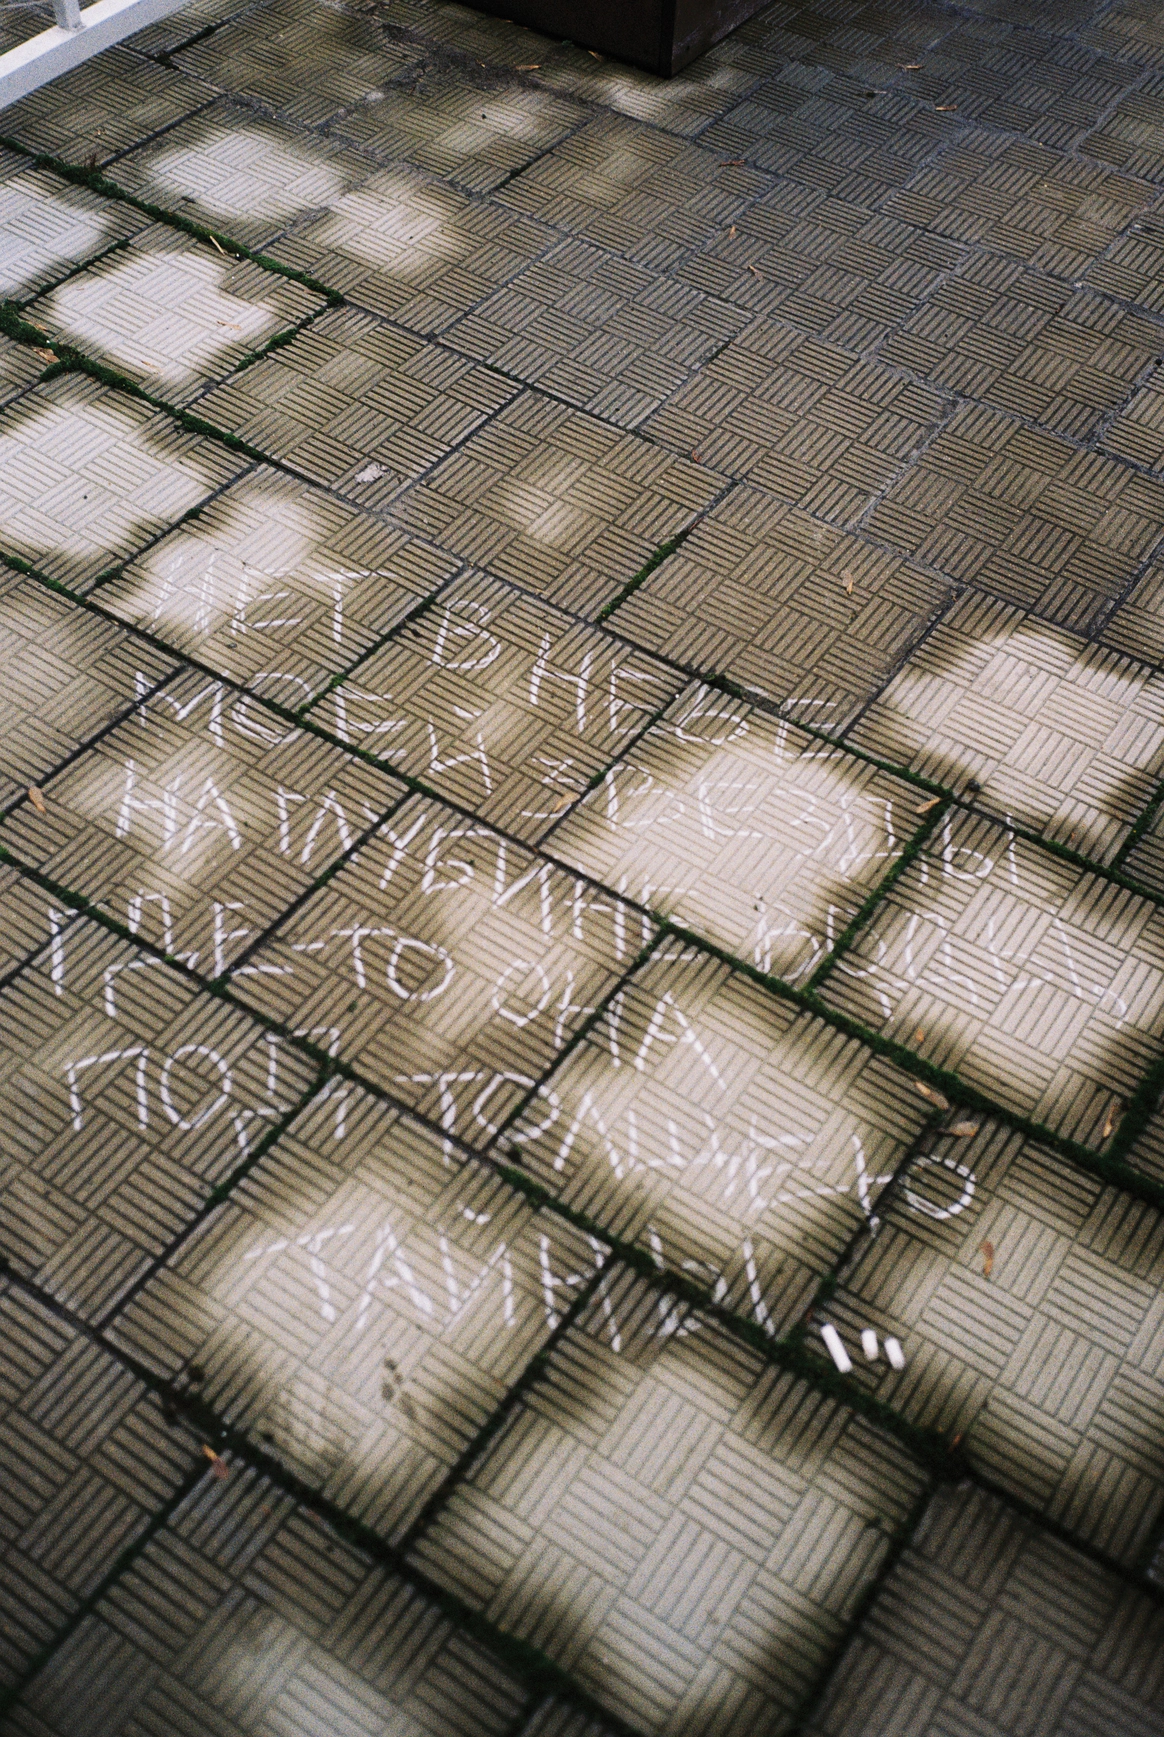 НЕТ В НЕБЕ
МОЕЙ ЗВЕЗДЫ
НА ГЛУБИНЕ ВОДИЦ,
ГДЕ-ТО ОНА
ПОД ТОЛЩЕЮ
ТАЙНЫ...